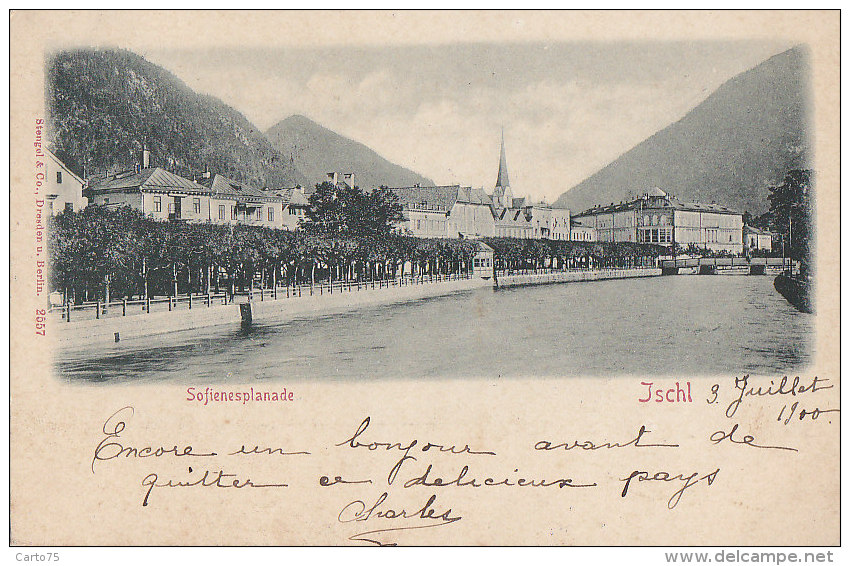 Stengel & Co., Dresden u. Berlin. 2557
Sofienesplanade
Ischl 3 Juillet
1900.
Encore un bonjour avant de
quitter ce délicieux pays
Charles
Carto75
www.delcampe.net